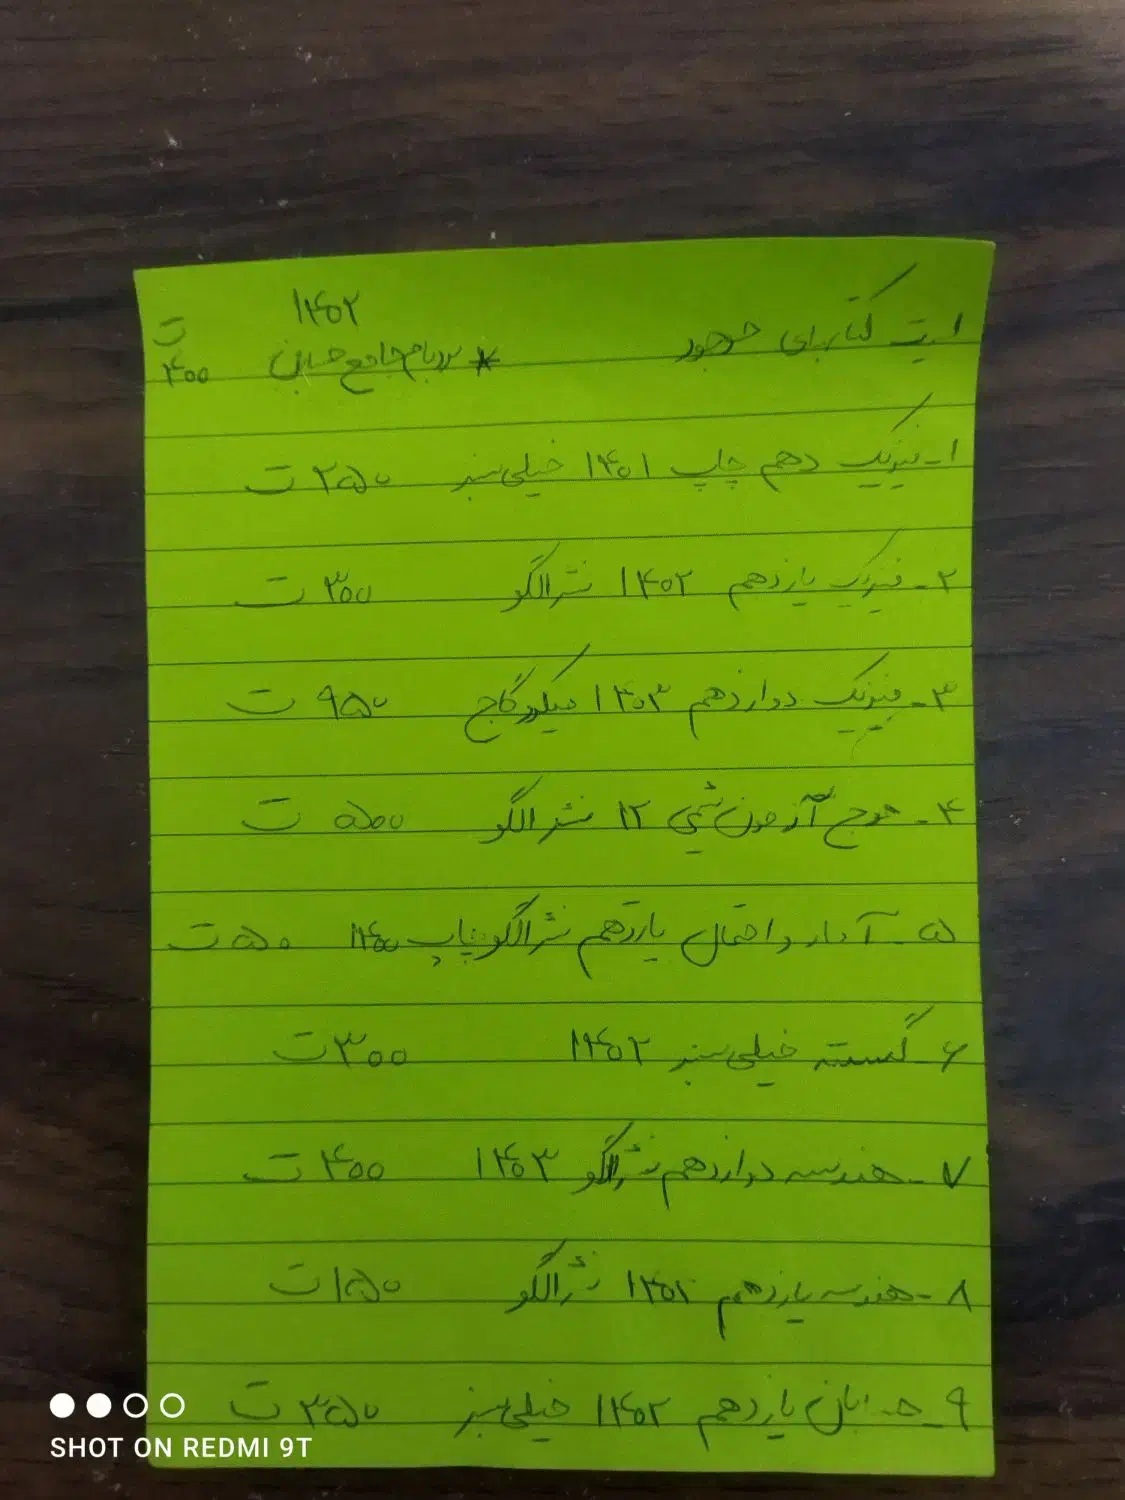 لیست کتابهای موجود
۱۴۰۲
* پرونام جامع حسابان ۴۰۰ ت
۱- فیزیک دهم چاپ ۱۴۰۱ خیلی سبز ۲۵۰ ت
۲- فیزیک یازدهم ۱۴۰۲ نشرالگو ۳۰۰ ت
۳- فیزیک دوازدهم ۱۴۰۳ میکرو گاج ۹۵۰ ت
۴- موج آزمون شیمی ۱۲ نشرالگو ۵۰۰ ت
۵- آمار و احتمال یازدهم نشرالگو چاپ ۱۴۰۰ ۵۰ ت
۶- گسسته خیلی سبز ۱۴۰۲ ۳۰۰ ت
۷- هندسه دوازدهم نشرالگو ۱۴۰۳ ۴۰۰ ت
۸- هندسه یازدهم ۱۴۰۲ نشرالگو ۱۵۰ ت
۹- حسابان یازدهم ۱۴۰۲ خیلی سبز ۳۵۰ ت
SHOT ON REDMI 9T